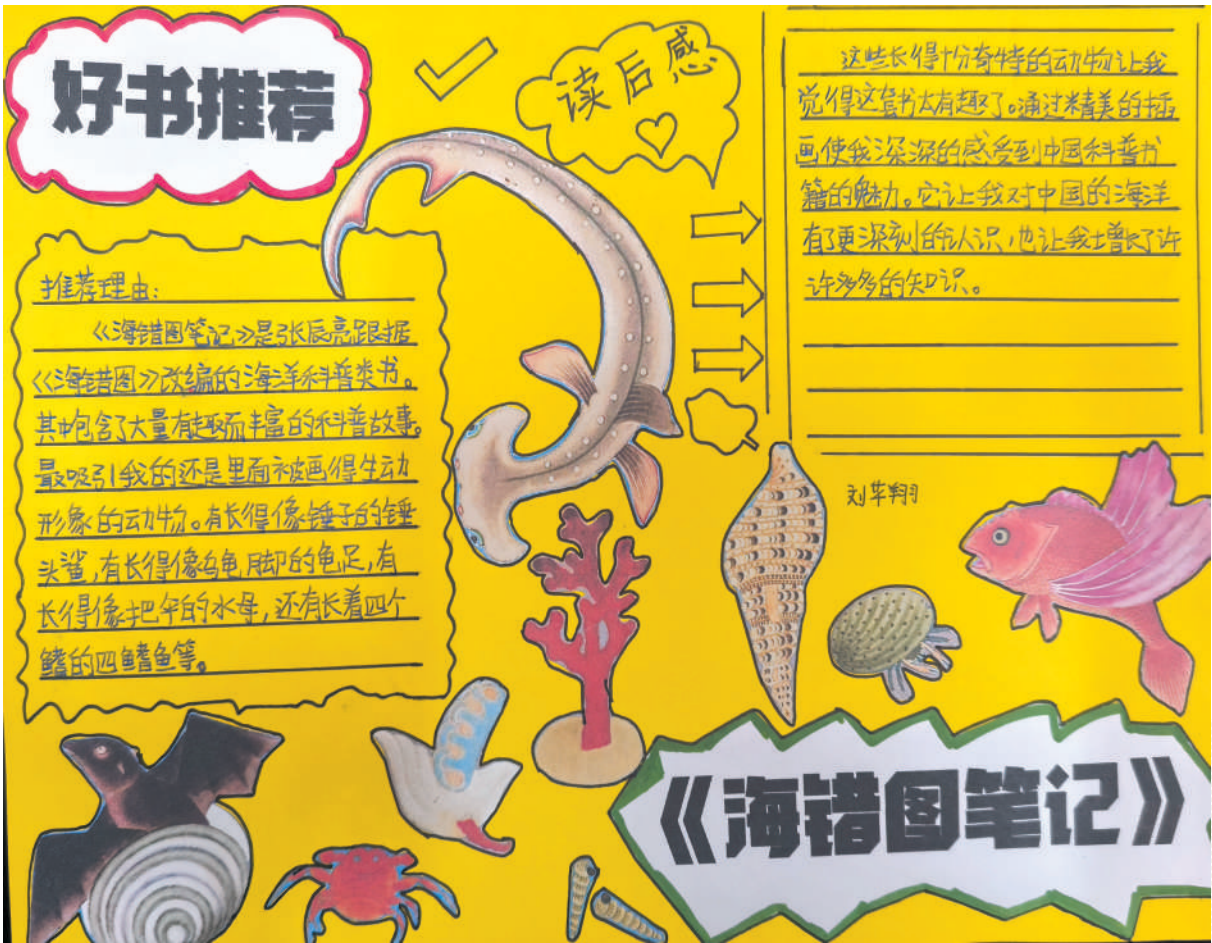 好书推荐
读后感
推荐理由：
《海错图笔记》是张辰亮跟据
《海错图》改编的海洋科普类书。
其中包含了大量有趣而丰富的科普故事。
最吸引我的还是里面被画得生动
形象的动物。有长得像锤子的锤
头鲨，有长得像乌龟脚的龟足，有
长得像把伞的水母，还有长着四个
鳍的四鳍鱼等。
这些长得十分奇特的动物让我
觉得这套书太有趣了。通过精美的插
画使我深深的感受到中国科普书
籍的魅力。它让我对中国的海洋
有了更深刻的认识，也让我增长了许
许多多的知识。
《海错图笔记》